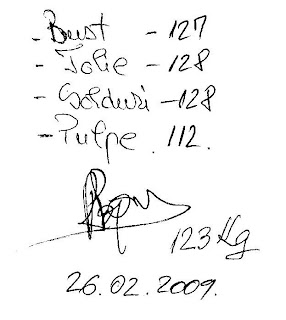 - Bust - 127
- Talie - 128
- Solduri - 128
- Pulpe . 112.
123 Kg
26.02.2009.